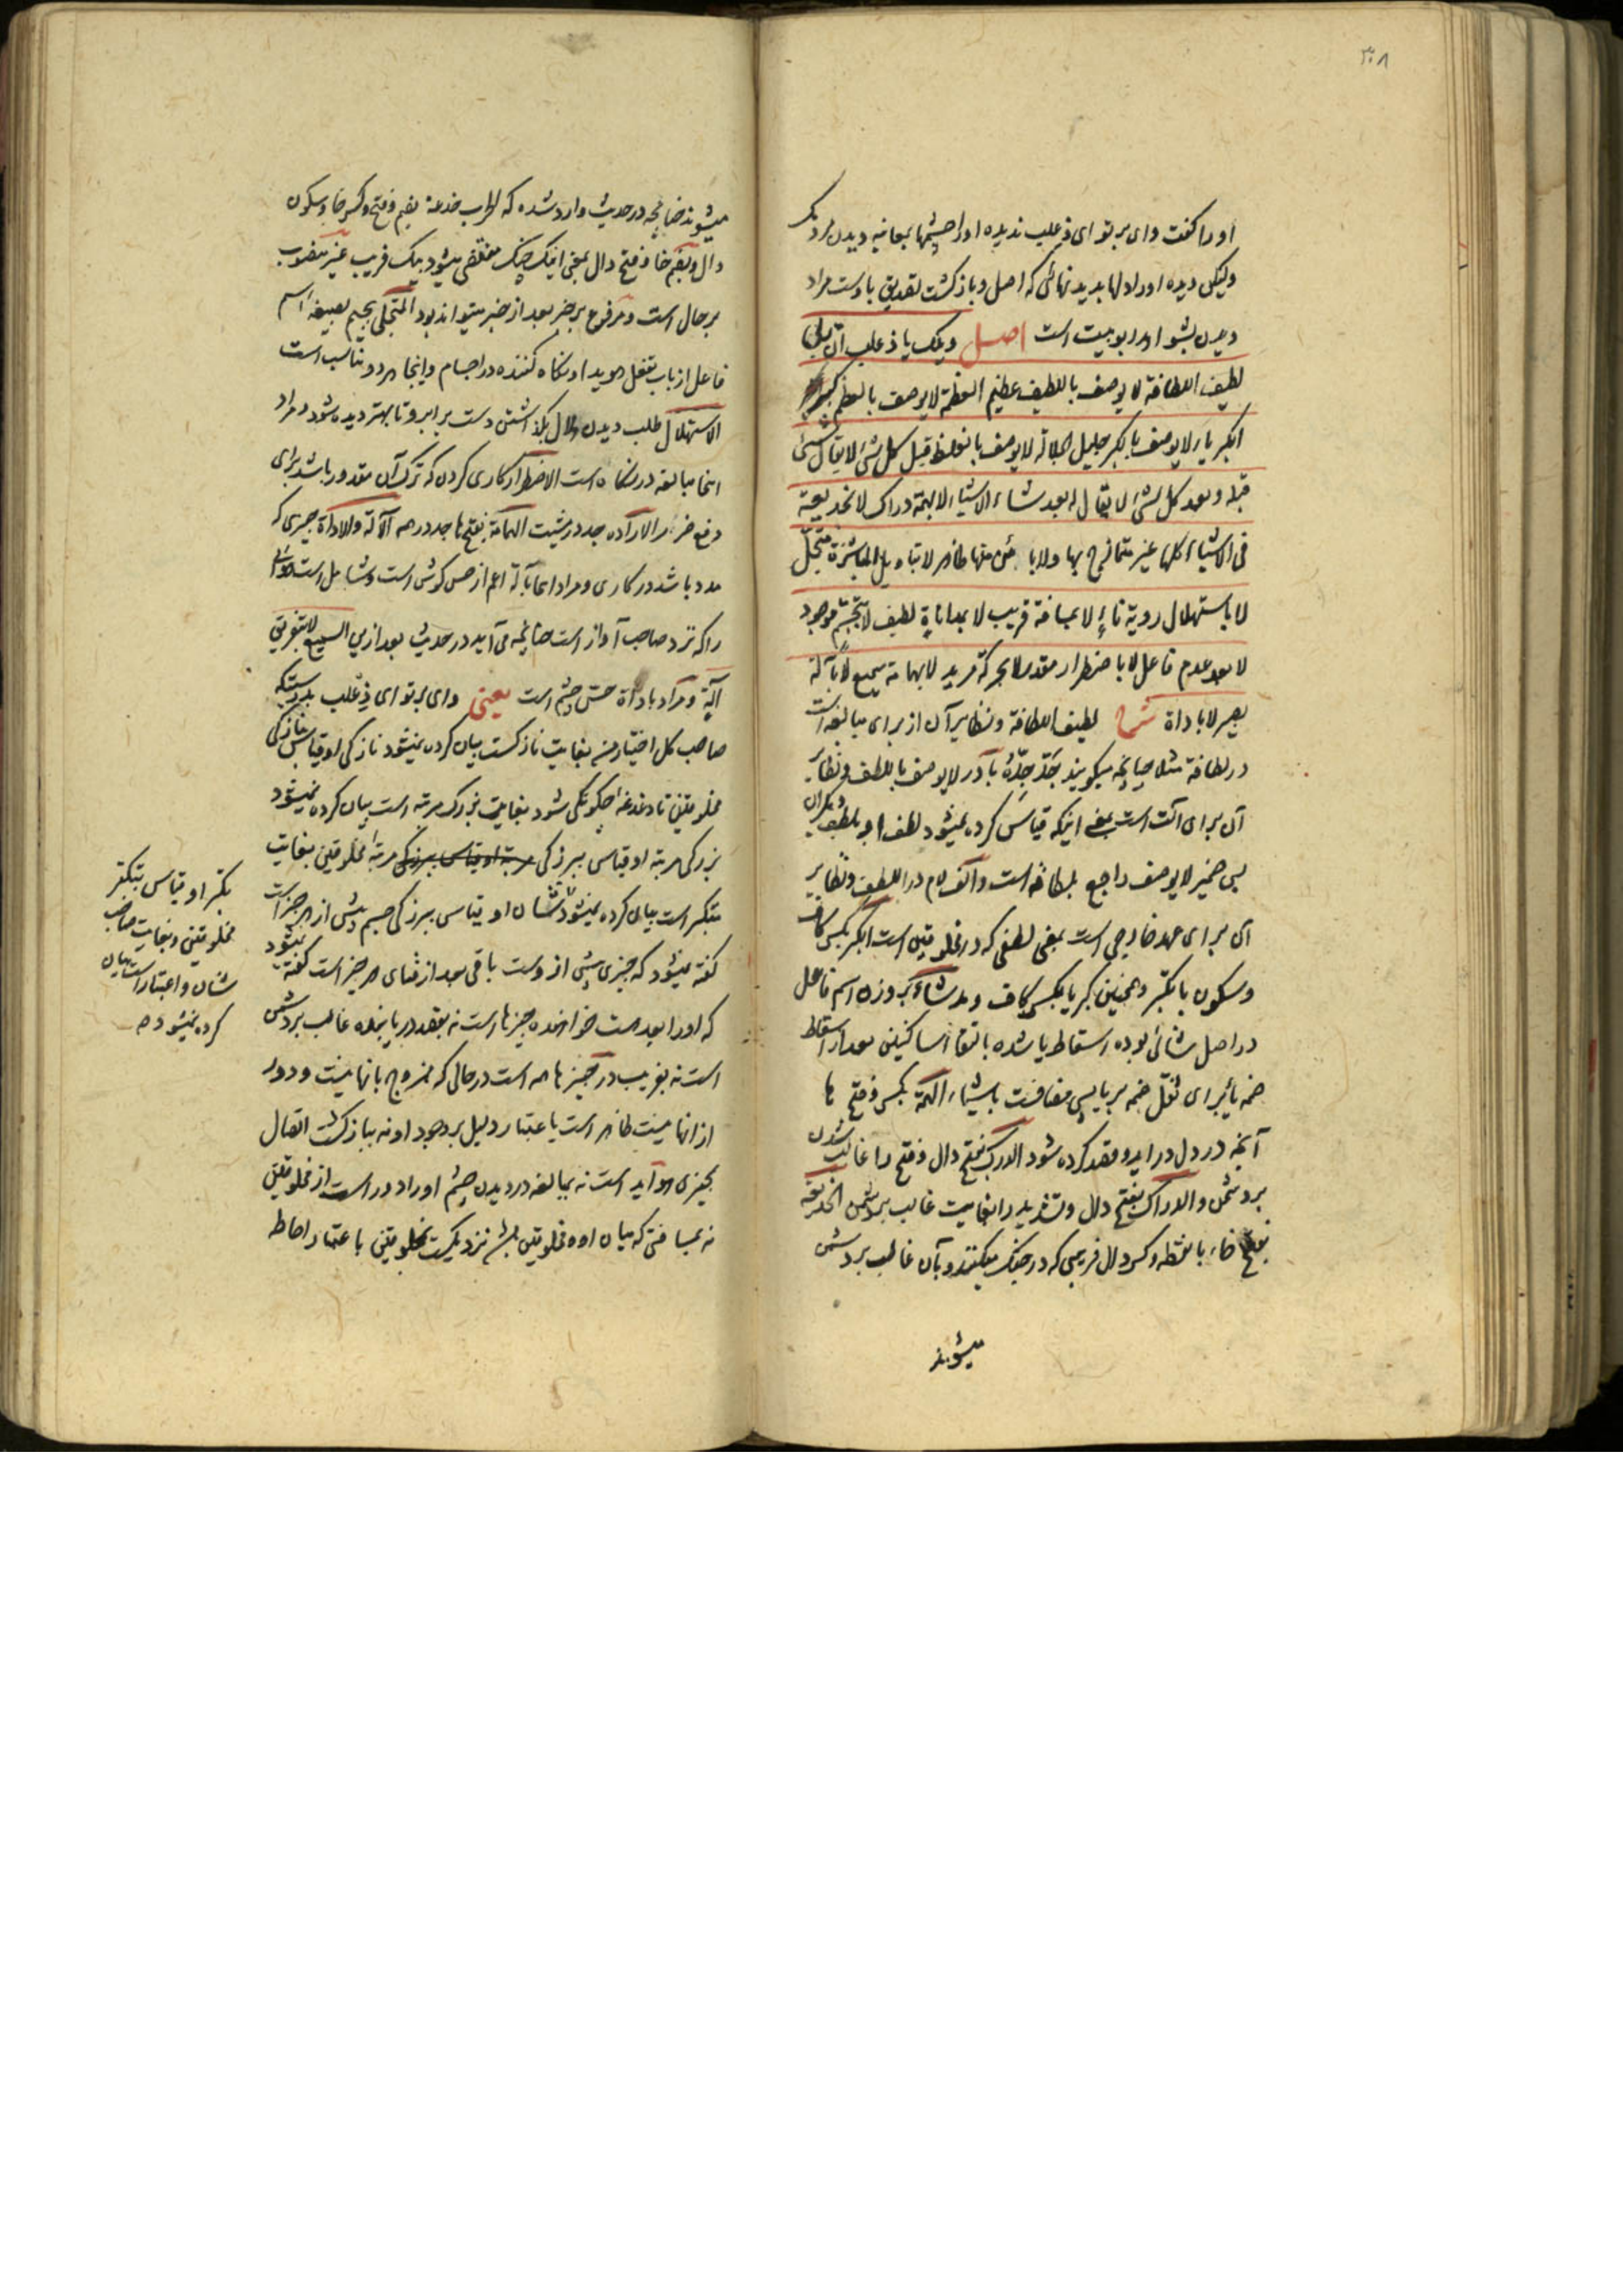 ۳۰۸
او را گفت وای بر تو ای ذعلب ندیده او را چشمها بمعاینه دیدن نزدیک
ولیکن دیده او را دلها بدیدنهائی که اصل و بازگشت تصدیق باوست مراد
دیدن بشواهد ربوبیت است اصل ویلک یا ذعلب ان ربی
لطیف اللطافة لا یوصف باللطف عظیم العظمة لا یوصف بالعظم کبیر
الکبریاء لا یوصف بالکبر جلیل الجلالة لا یوصف بالغلظ قبل کل شئ لا یقال شئ
قبله و بعد کل شئ لا یقال له بعد شاء الاشیاء لا بهمة دراک لا بخدیعة
فی الاشیاء کلها غیر متمازج بها ولا بائن منها ظاهر لا بتاویل المباشرة متجل
لا باستهلال رویة ناء لا بمسافة قریب لا بمداناة لطیف لا بتجسم موجود
لا بعد عدم فاعل لا باضطرار مقدر لا بحرکة مرید لا بهمامة سمیع لا بآلة
بصیر لا باداة شرح لطیف اللطافة و نظایر آن از برای مبالغه است
در لطافة مثلا چنانچه میگویند جَدَّ جِدُّهُ با در لا یوصف باللطف و نظایر
آن برای آلت است یعنی اینکه قیاس کرده نمیشود لطف او بلطف دیگران
پس ضمیر لا یوصف راجع بلطافة است و الف لام در اللطف و نظایر
آن برای عهد خارجی است بمعنی لطفی که در مخلوقین است الکبر بکسر کاف
و سکون با تکبر و همچنین کبریا بکسر کاف و مد شاء بر وزن اسم فاعل
در اصل شائی بوده اسقاط یا شده بالتقاء ساکنین بعد از اسقاط
ضمه یا برای ثقل ضمه بر یا پس مضافست باشیاء الهمة بکسر و فتح ها
آنچه در دل در آید و قصد کرده شود الدرک بفتح دال و فتح را غالب شدن
بر دشمن و الدراک بفتح دال و تشدید را بغایت غالب بر دشمن الخدیعة
بفتح خاء با نقطه و کسر دال فریبی که در جنگ میکنند و بآن غالب بر دشمن
میشوند
میشوند چنانچه در حدیث وارد شده که الحرب خدعة بضم و فتح و کسر خا و سکون
دال و بضم خا و فتح دال بمعنی اینکه جنگ منقضی میشود بیک فریب غیر منصوب
بر حال است و مرفوع بر خبر بعد از خبر میتواند بود المتجلی بجیم بصیغه اسم
فاعل از باب تفعل هویدا و نگاه کننده در اجسام و اینجا هر دو مناسب است
الاستهلال طلب دیدن هلال بگذاشتن دست بر ابرو تا بهتر دیده شود و مراد
اینجا مبالغه در نگاه است الاضطرار کاری کردن که ترک آن مقدور باشد برای
دفع ضرر الاراده جد در مشیت الهمامة بفتح ها جد در همه الآلة و الاداة چیزی که
مدد باشد در کاری و مراد اینجا بآلة اعم از حس گوش است و شامل است هوائی
را که نزد صاحب آواز است چنانچه می آید در حدیث بعد از این السمیع لا بتفریق
آلة و مراد باداة حس چشم است یعنی وای بر تو ای ذعلب بدرستیکه
صاحب کل اختیار من بغایت نازکست بیان کرده نمیشود نازکی او بقیاس نازکی
مخلوقین تا دغدغه چگونگی شود بغایت بزرگ مرتبه است بیان کرده نمیشود
بزرگی مرتبه او بقیاس ببزرگی مرتبه مخلوقین بغایت
متکبر است بیان کرده نمیشود
تکبر او بقیاس بتکبر
مخلوقین و بغایت صاحب
شان و اعتبار است بیان
کرده نمیشود صح
شان او بقیاس ببزرگی جسم پیش از هر چیز است
گفته نمیشود که چیزی پیش از وست باقی بعد از فنای هر چیز است گفته نمیشود
که او را بعد هست خواهنده چیزها است نه بقصد دریابنده غالب بر دشمن
است نه بفریب در چیزها همه است در حالی که ممزوج بآنها نیست و دور
از آنها نیست ظاهر است باعتبار دلیل بر وجود او نه ببازگشت اتصال
بچیزی هویدا است نه بمبالغه در دیدن چشم او را دور است از مخلوقین
نه بمسافتی که میان او و مخلوقین باشد نزدیکست بمخلوقین باعتبار احاطه